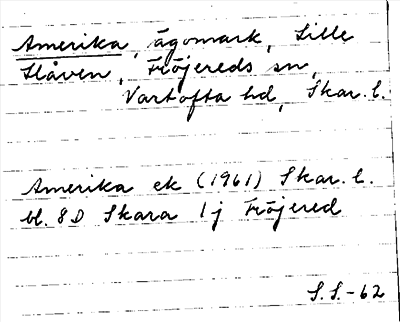 Amerika, ägomark, Lille
Slåven, Fröjereds sn,
Vartofta hd, Skar. l.
Amerika ek (1961) Skar. l.
bl. 8D Skara 1j Fröjered
S.S.-62